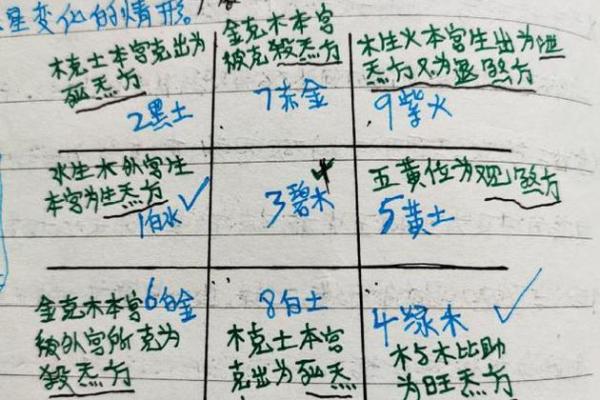 星变化的情形.
木克土本宫克出为
死炁方
2黑土
金克木本宫
被克殺炁方
7赤金
木生火本宫生出为泄
炁方又为退煞方
9紫火
水生木外宫生
本宫为生炁方
1白水
3碧木
五黄位为观煞方
5黄土
金克木本宫
6白金
被外宫所克为
殺炁方
8白土
木克土本宫
克出为死炁
4绿木
木与木比助
为旺炁方